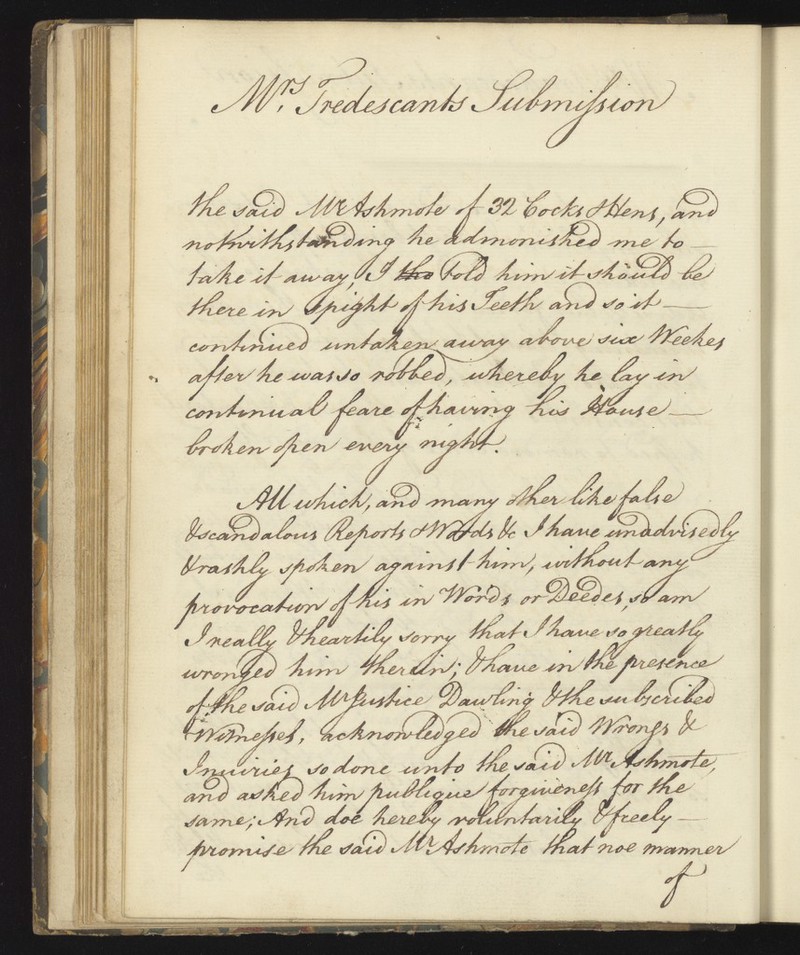 Mrs. Tredescants Submiſsion
the said Mr Ashmole of 32 Cocks & Hens, and
notwithstanding he admonished me to —
take it away, I tho told him it should be
there in spight of his Teeth and so it —
continued untaken away above six Weekes
after he was so robbed, whereby he lay in
continual feare of having his House —
broken open every night.
All which, and many other like false
& scandalous Reports & Words &c I have unadvisedly
& rashly spoken against him, without any
provocation of his in Words or Deedes, so am
I really & heartily sorry that I have so greatly
wronged him therein; & have in the presence
of the said Mr Justice Dawling & the subscribed
Witneſses, acknowledged the said Wrongs &
Iniuries so done unto the said Mr Ashmole,
and asked him publique forgiveneſs for the
same; And doe hereby voluntarily & freely —
promise the said Mr Ashmole that noe manner
of